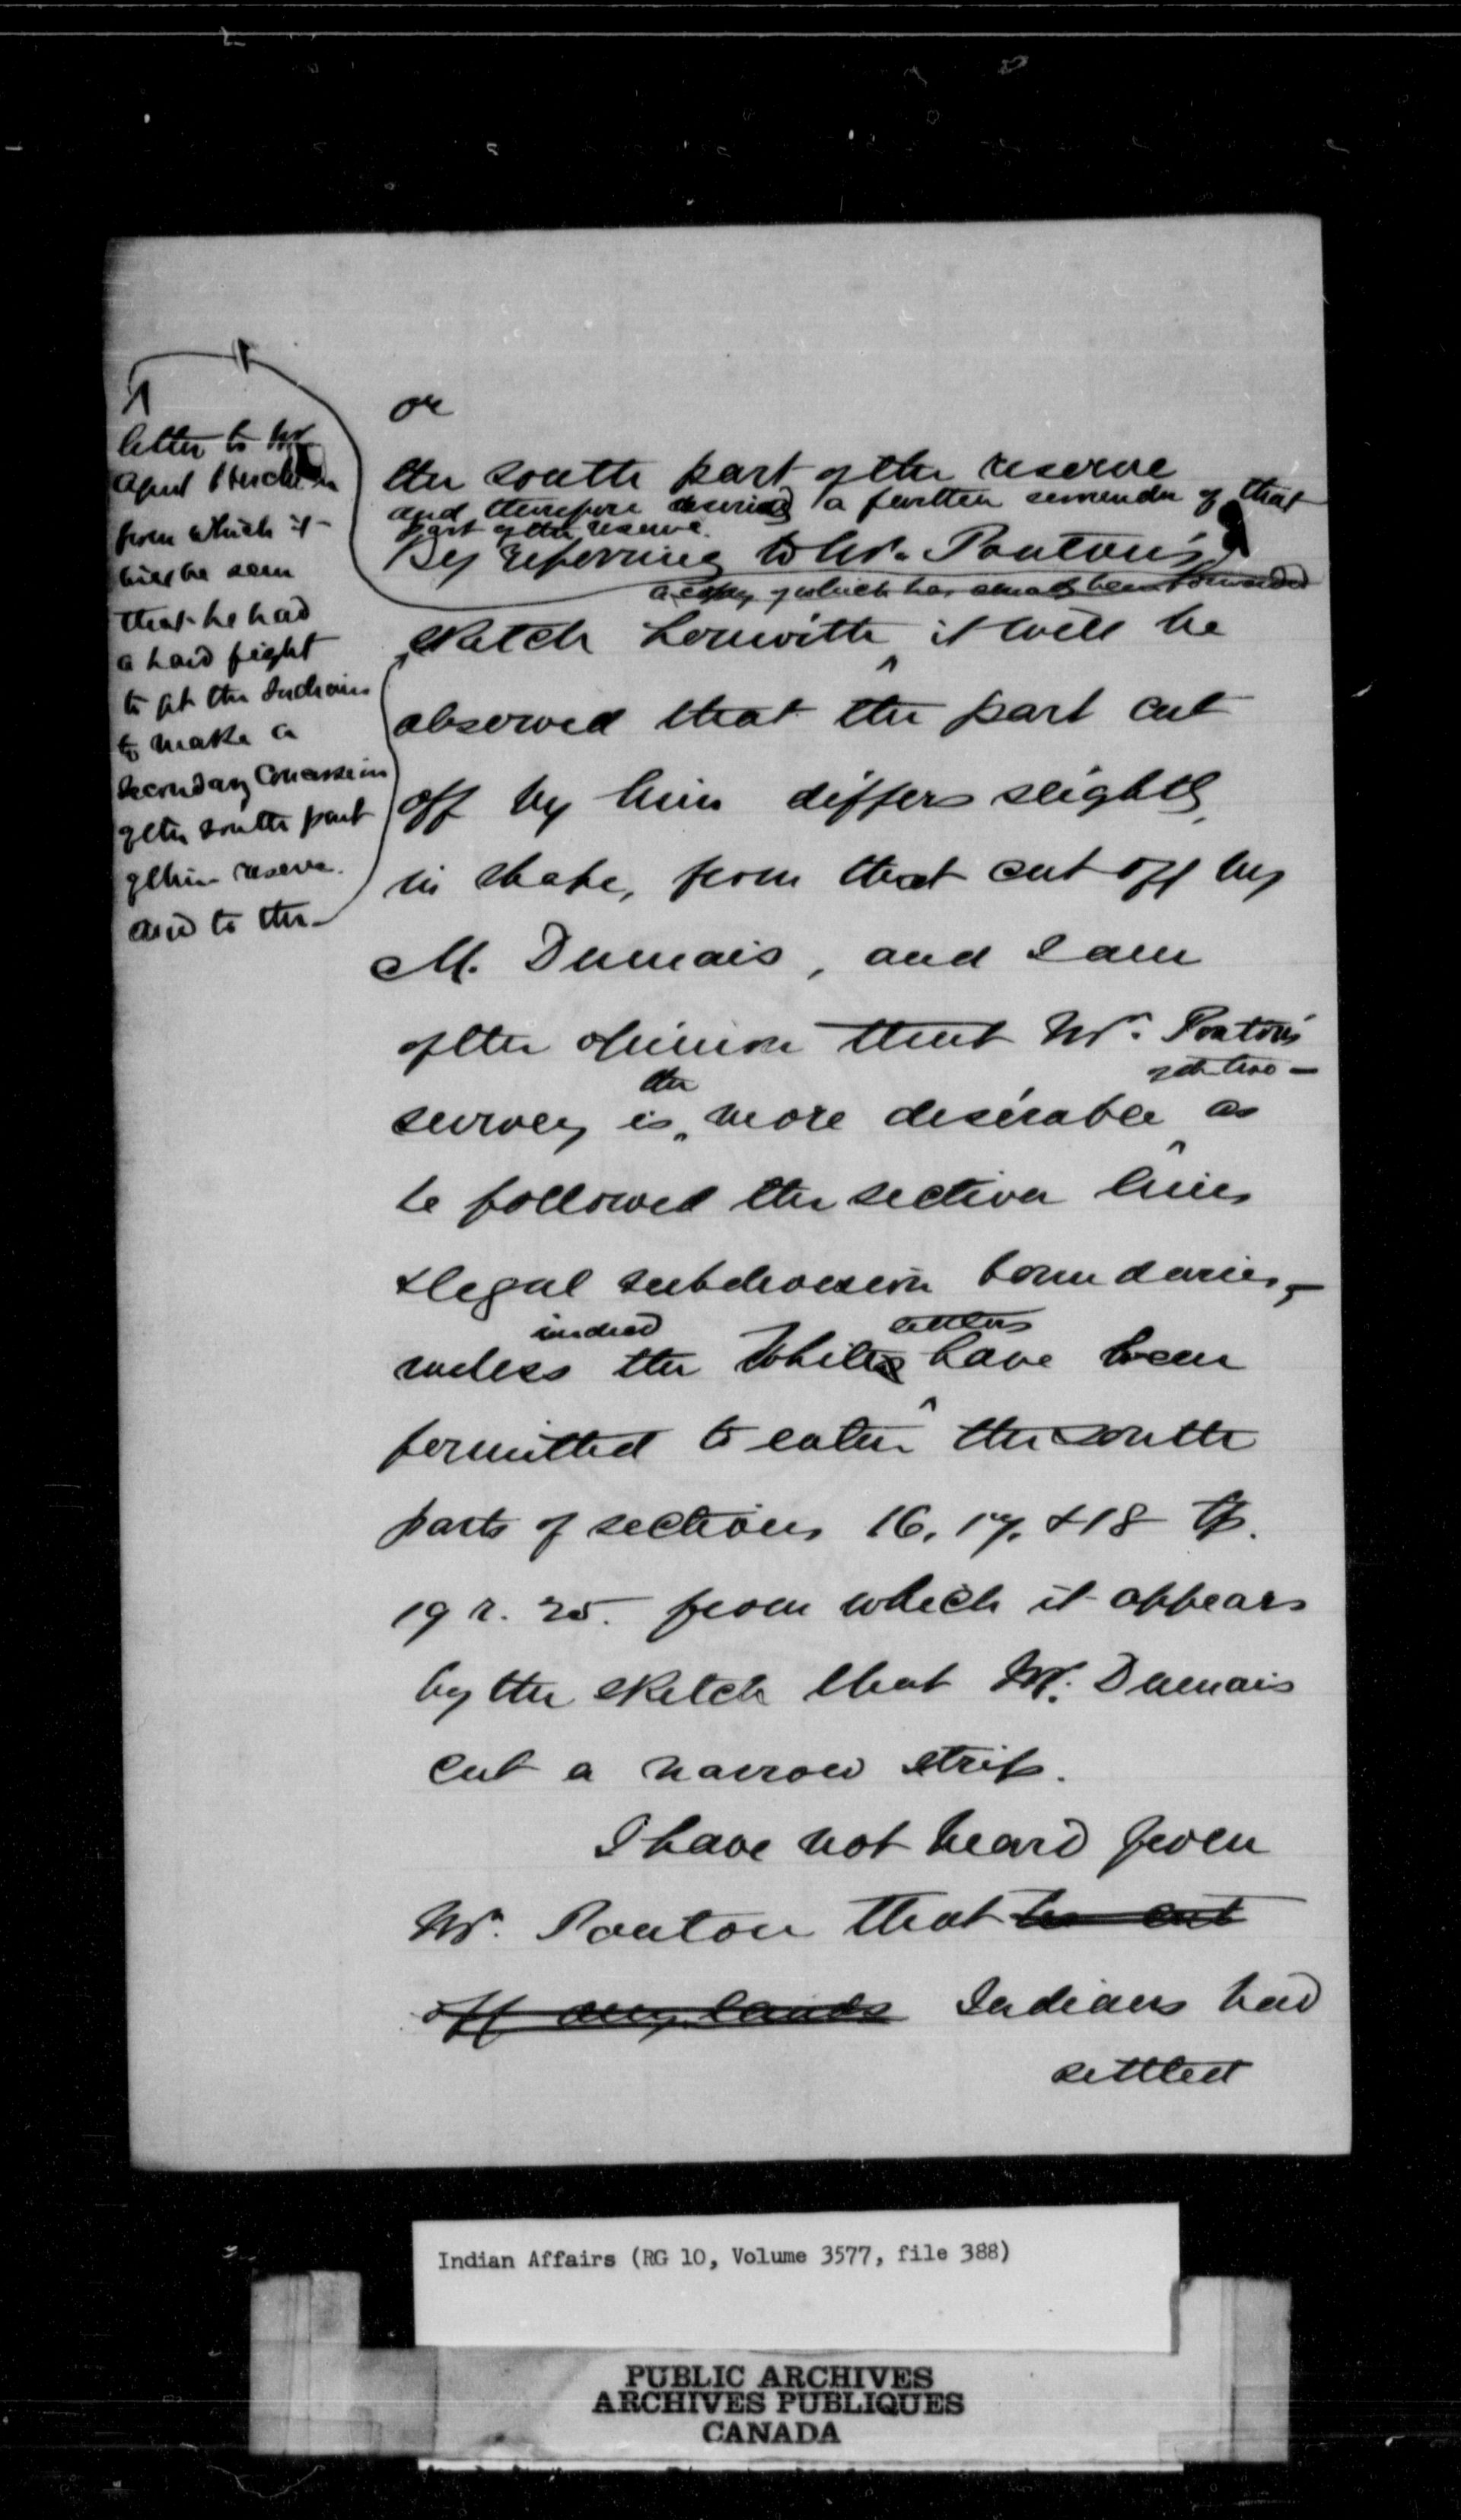 letter to Mr
Agent
from which it
will be seen
that he had
a hard fight
to get the Indians
to make a
secondary Concession
of the south part
of their reserve.
and to the
or
the south part of the reserve
and therefore a further surrender of that
part of the reserve.
By referring to Mr. Ponton's
a copy of which has already been forwarded
sketch herewith it will be
observed that the part cut
off by him differs slightly,
in shape, from that cut off by
M. Dumais, and I am
of the opinion that Mr. Ponton's
the of the two
survey is more desirable as
he followed the section lines
& legal subdivision boundaries,
indeed settlers
unless the White have been
permitted to enter the south
parts of sections 16, 17, & 18 Tp.
19 r. 25. from which it appears
by the sketch that M. Dumais
cut a narrow strip.
I have not heard from
Mr. Ponton that he cut
off any lands Indians had
settled
Indian Affairs (RG 10, Volume 3577, file 388)
PUBLIC ARCHIVES
ARCHIVES PUBLIQUES
CANADA